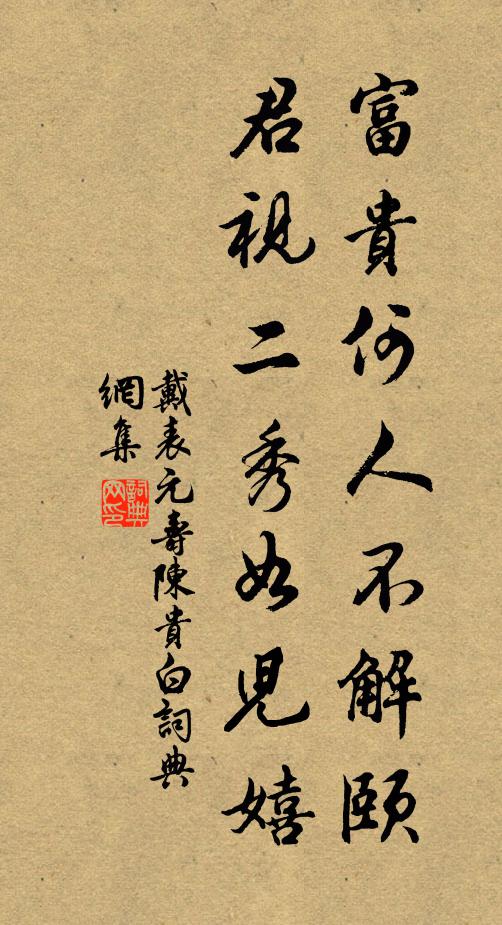 富貴何人不解頤
君視二秀如兒嬉
戴表元壽陳貴白詞典
網集
詞典
网印